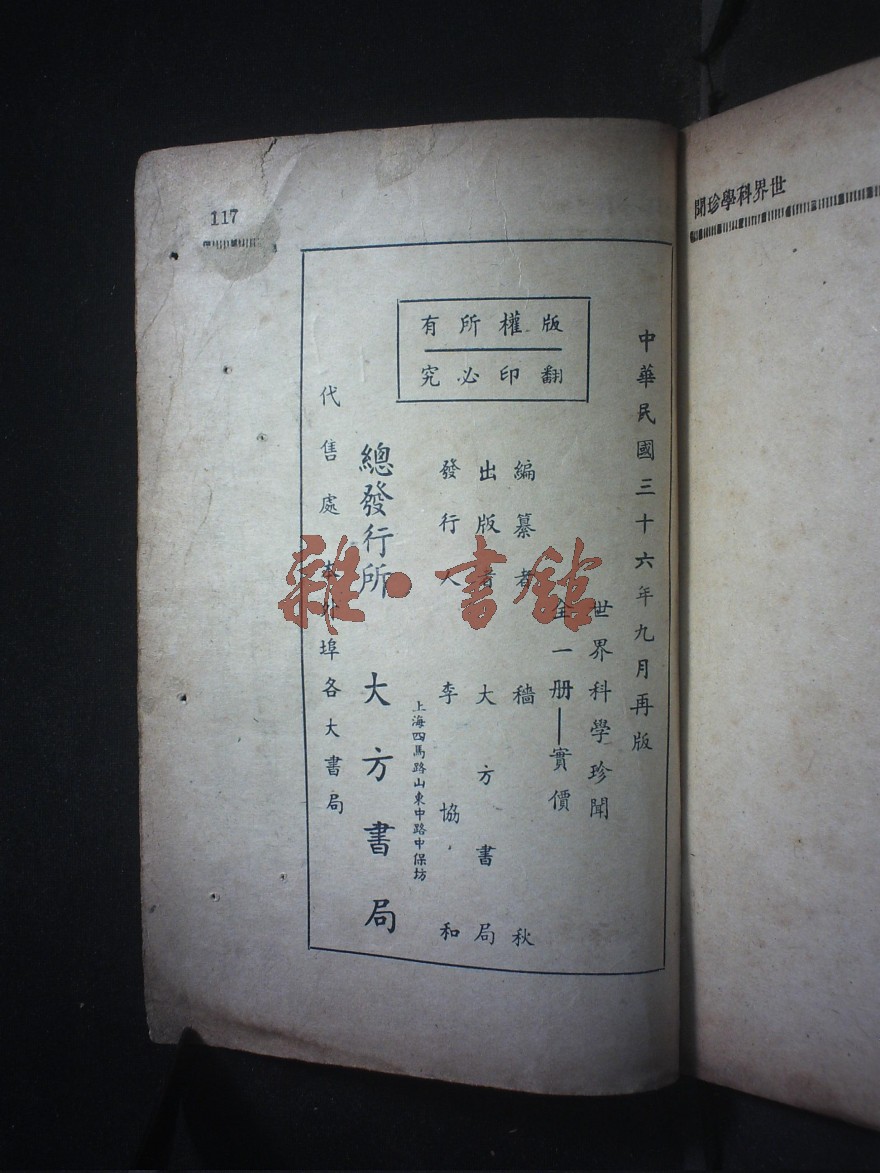 世界科學珍聞
117
版權所有
翻印必究
中華民國三十六年九月再版
世界科學珍聞
全一册—實價
編纂者 穡秋
出版者 大方書局
發行人 李協和
上海四馬路山東中路中保坊
總發行所 大方書局
代售處 本外埠各大書局
雜·書館